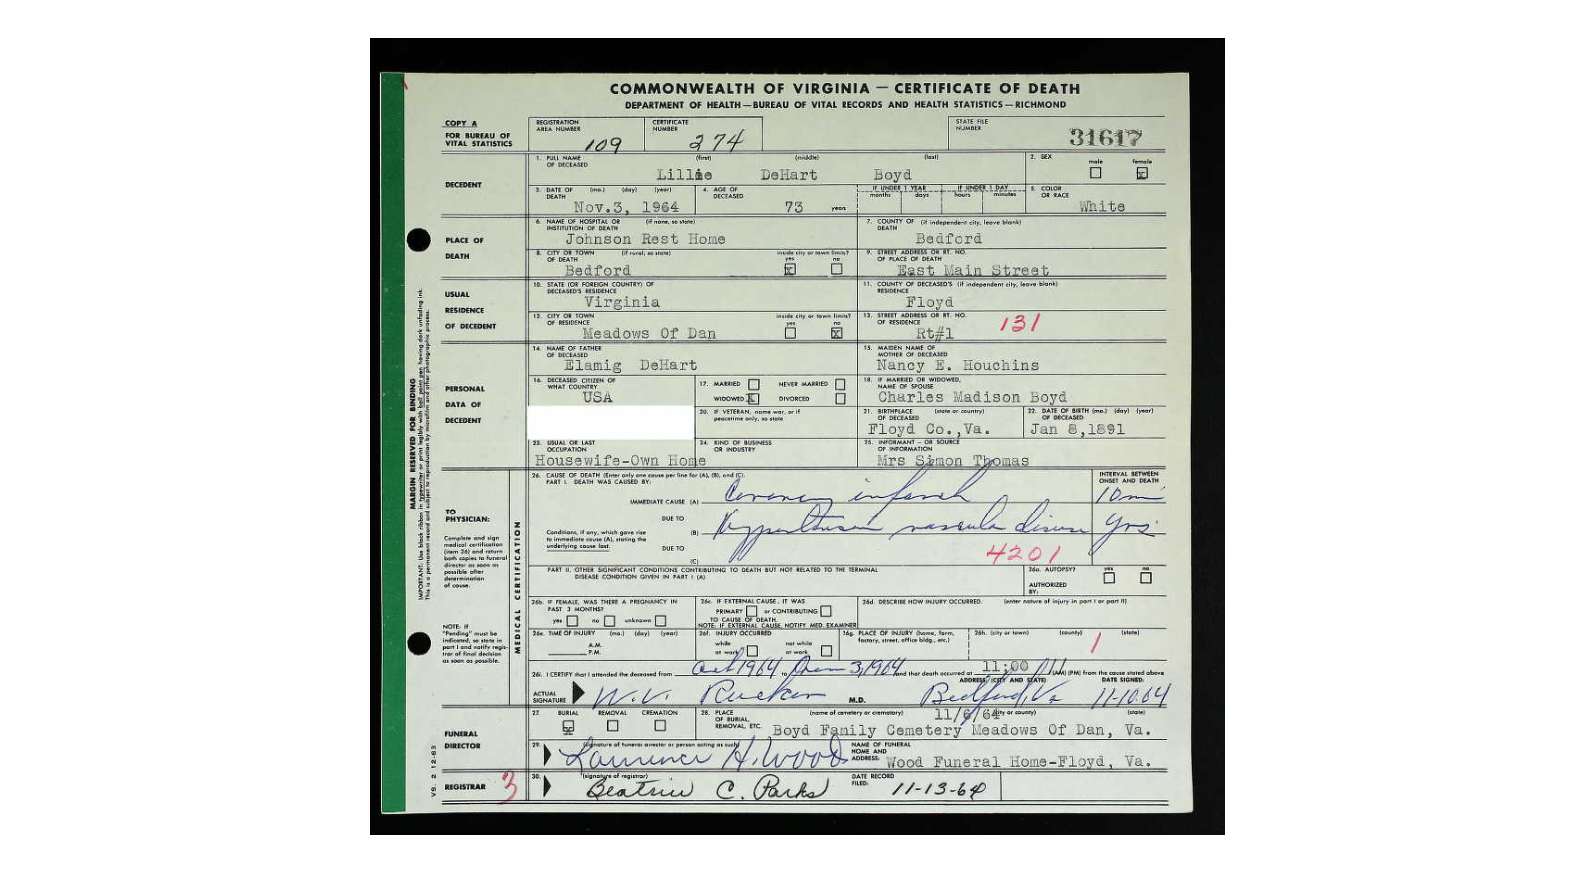 COMMONWEALTH OF VIRGINIA — CERTIFICATE OF DEATH
DEPARTMENT OF HEALTH—BUREAU OF VITAL RECORDS AND HEALTH STATISTICS—RICHMOND
COPY A
FOR BUREAU OF
VITAL STATISTICS
REGISTRATION AREA NUMBER 109
CERTIFICATE NUMBER 274
STATE FILE NUMBER 31617
DECEDENT
1. FULL NAME OF DECEASED (first) (middle) (last)
Lillie DeHart Boyd
2. SEX male female x
3. DATE OF DEATH (mo.) (day) (year)
Nov.3, 1964
4. AGE OF DECEASED 73 years
IF UNDER 1 YEAR months days
IF UNDER 1 DAY hours minutes
5. COLOR OR RACE White
PLACE OF
DEATH
6. NAME OF HOSPITAL OR INSTITUTION OF DEATH (if none, so state)
Johnson Rest Home
7. COUNTY OF DEATH (if independent city, leave blank)
Bedford
8. CITY OR TOWN OF DEATH (if rural, so state)
Bedford
inside city or town limits? yes x no
9. STREET ADDRESS OR RT. NO. OF PLACE OF DEATH
East Main Street
USUAL
RESIDENCE
OF DECEDENT
10. STATE (OR FOREIGN COUNTRY) OF DECEASED'S RESIDENCE
Virginia
11. COUNTY OF DECEASED'S RESIDENCE (if independent city, leave blank)
Floyd
12. CITY OR TOWN OF RESIDENCE
Meadows Of Dan
inside city or town limits? yes no x
13. STREET ADDRESS OR RT. NO. OF RESIDENCE
Rt#1
131
PERSONAL
DATA OF
DECEDENT
14. NAME OF FATHER OF DECEASED
Elamig DeHart
15. MAIDEN NAME OF MOTHER OF DECEASED
Nancy E. Houchins
16. DECEASED CITIZEN OF WHAT COUNTRY
USA
17. MARRIED NEVER MARRIED
WIDOWED x DIVORCED
18. IF MARRIED OR WIDOWED, NAME OF SPOUSE
Charles Madison Boyd
20. IF VETERAN, name war, or if peacetime only, so state
21. BIRTHPLACE OF DECEASED (state or country)
Floyd Co.,Va.
22. DATE OF BIRTH OF DECEASED (mo.) (day) (year)
Jan 8,1891
23. USUAL OR LAST OCCUPATION
Housewife-Own Home
24. KIND OF BUSINESS OR INDUSTRY
25. INFORMANT – OR SOURCE OF INFORMATION
Mrs Simon Thomas
MARGIN RESERVED FOR BINDING
TO
PHYSICIAN:
Complete and sign
medical certification
(item 26) and return
both copies to funeral
director as soon as
possible after
determination
of cause.
NOTE: IF
"Pending" must be
indicated, so state in
part I and notify regis-
trar of final decision
as soon as possible.
MEDICAL CERTIFICATION
26. CAUSE OF DEATH (Enter only one cause per line for (A), (B), and (C).
PART I. DEATH WAS CAUSED BY:
INTERVAL BETWEEN ONSET AND DEATH
IMMEDIATE CAUSE (A) Coronary infarct 10 min
DUE TO
Conditions, if any, which gave rise
to immediate cause (A), stating the
underlying cause last.
(B) Hypertensive vascular disease yrs.
DUE TO
(C)
4201
PART II. OTHER SIGNIFICANT CONDITIONS CONTRIBUTING TO DEATH BUT NOT RELATED TO THE TERMINAL
DISEASE CONDITION GIVEN IN PART I (A)
26a. AUTOPSY? yes no
AUTHORIZED BY:
26b. IF FEMALE, WAS THERE A PREGNANCY IN PAST 3 MONTHS?
yes no unknown
26c. IF EXTERNAL CAUSE, IT WAS
PRIMARY or CONTRIBUTING
TO CAUSE OF DEATH.
NOTE: IF EXTERNAL CAUSE, NOTIFY MED. EXAMINER
26d. DESCRIBE HOW INJURY OCCURRED. (enter nature of injury in part I or part II)
26e. TIME OF INJURY (mo.) (day) (year)
A.M.
P.M.
26f. INJURY OCCURRED
while at work
not while at work
26g. PLACE OF INJURY (home, farm, factory, street, office bldg., etc.)
26h. (city or town) (county) (state)
1
26i. I CERTIFY that I attended the deceased from Oct 1964 to 3,1964 and that death occurred at 11:00 (AM) (PM) from the cause stated above
ACTUAL SIGNATURE W.V. Rucker M.D.
ADDRESS: (CITY AND STATE) Bedford, Va
DATE SIGNED: 11-10-64
FUNERAL
DIRECTOR
27. BURIAL x REMOVAL CREMATION
28. PLACE OF BURIAL, REMOVAL, ETC. (name of cemetery or crematory) (city or county) (state)
11/6/64
Boyd Family Cemetery Meadows Of Dan, Va.
29. (signature of funeral director or person acting as such)
Laurence H. Wood
NAME OF FUNERAL HOME AND ADDRESS: Wood Funeral Home-Floyd, Va.
REGISTRAR
3
30. (signature of registrar)
Beatrice C. Parks
DATE RECORD FILED: 11-13-64
VS. 2 12-63